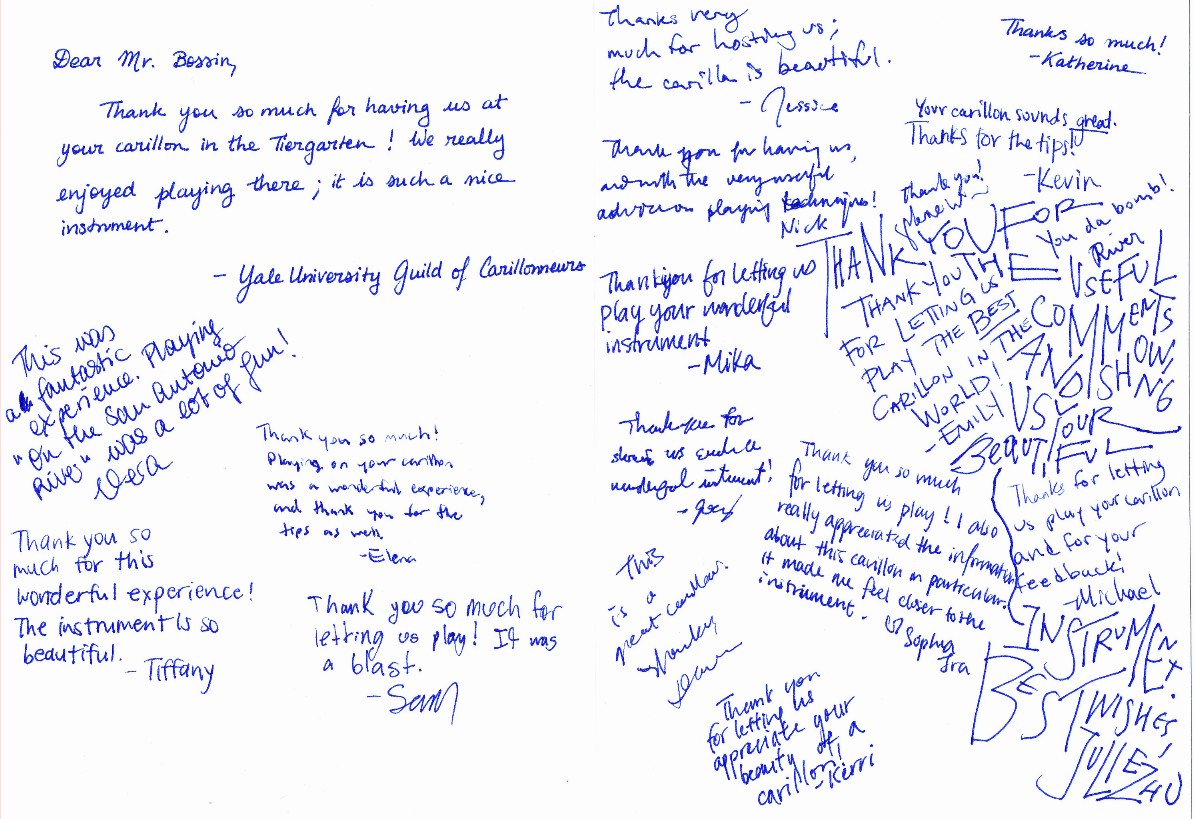 Dear Mr. Bossin,
Thank you so much for having us at
your carillon in the Tiergarten! We really
enjoyed playing there; it is such a nice
instrument.
- Yale University Guild of Carillonneurs
This was
a fantastic
experience. Playing
"On the San Antonio
River" was a lot of fun!
Vera
Thank you so much!
Playing on your carillon
was a wonderful experience,
and thank you for the
tips as well.
-Elena
Thank you so
much for this
wonderful experience!
The instrument is so
beautiful.
- Tiffany
Thank you so much for
letting us play! It was
a blast.
-Sam
Thanks very
much for hosting us;
the carilla is beautiful.
- Jessice
Thanks so much!
-Katherine
Your carillon sounds great.
Thanks for the tips!
-Kevin
Thank you for having us,
and with the very useful
advice on playing techniques!
Nick
thank you!
You da bomb!
River
Thank you for letting us
play your wonderful
instrument
-Mika
THANK YOU FOR
THE USEFUL
COMMENTS
AND SHOWING
US YOUR
BEAUTIFUL
INSTRUMENT.
BEST WISHES,
JULIE ZHU
THANK YOU
FOR LETTING US
PLAY THE BEST
CARILLON IN THE
WORLD!
-EMILY
Thank you for
us such a
wonderful instrument!
- Joey
Thank you so much
for letting us play! I also
really appreciated the information
about this carillon in particular.
it made me feel closer to the
instrument. Sophia
Ira
Thanks for letting
us play your carillon
and for your
feedback!
-Michael
This
is a
neat carillon.
Thank you
for letting us
appreciate your
beauty of a
carillon!
-Kerri